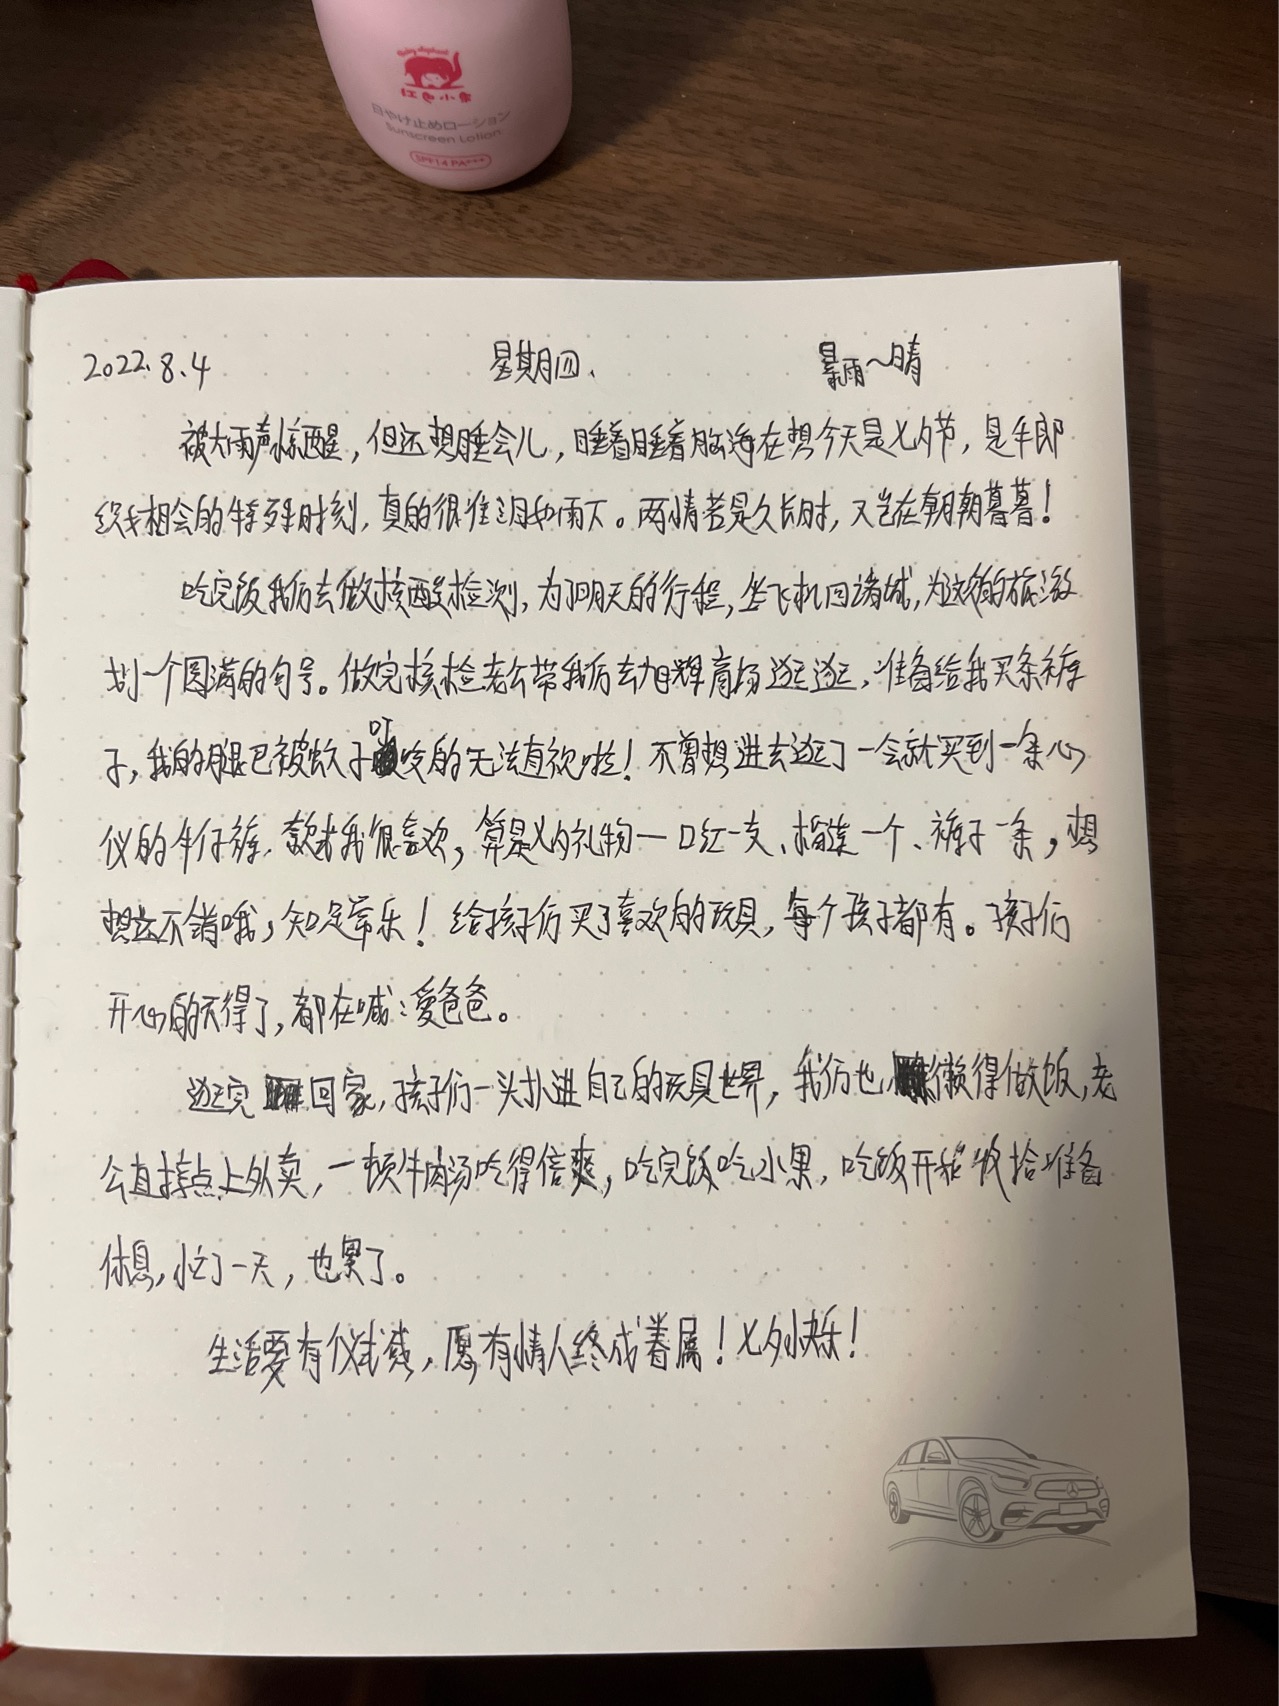 红色小象
日やけ止めローション
Sunscreen Lotion
2022.8.4 星期四. 暴雨~晴
被大雨声惊醒，但还想睡会儿，睡着睡着脑海在想今天是七夕节，是牛郎
织女相会的特殊时刻，真的很准泪如雨下。两情若是久长时，又岂在朝朝暮暮！
吃完饭我们去做核酸检测，为了明天的行程，坐飞机回诸城，为这次的旅游
划一个圆满的句号。做完核检老公带我们去旭辉商场逛逛，准备给我买条裤
子，我的腿巴被蚊子叮咬的无法直视啦！不曾想进去逛了一会就买到一条心
仪的牛仔裤，款式我很喜欢，算是七夕礼物一口红一支、榴莲一个、裤子一条，想
想去不错哦，知足常乐！给孩子们买了喜欢的玩具，每个孩子都有。孩子们
开心的不得了，都在喊：爱爸爸。
逛完回家，孩子们一头扑进自己的玩具世界，我们也懒得做饭，老
公直接点上外卖，一顿牛肉汤吃得倍爽，吃完饭吃水果，吃饭开始收拾准备
休息，忙了一天，也累了。
生活要有仪式感，愿有情人终成眷属！七夕快乐！